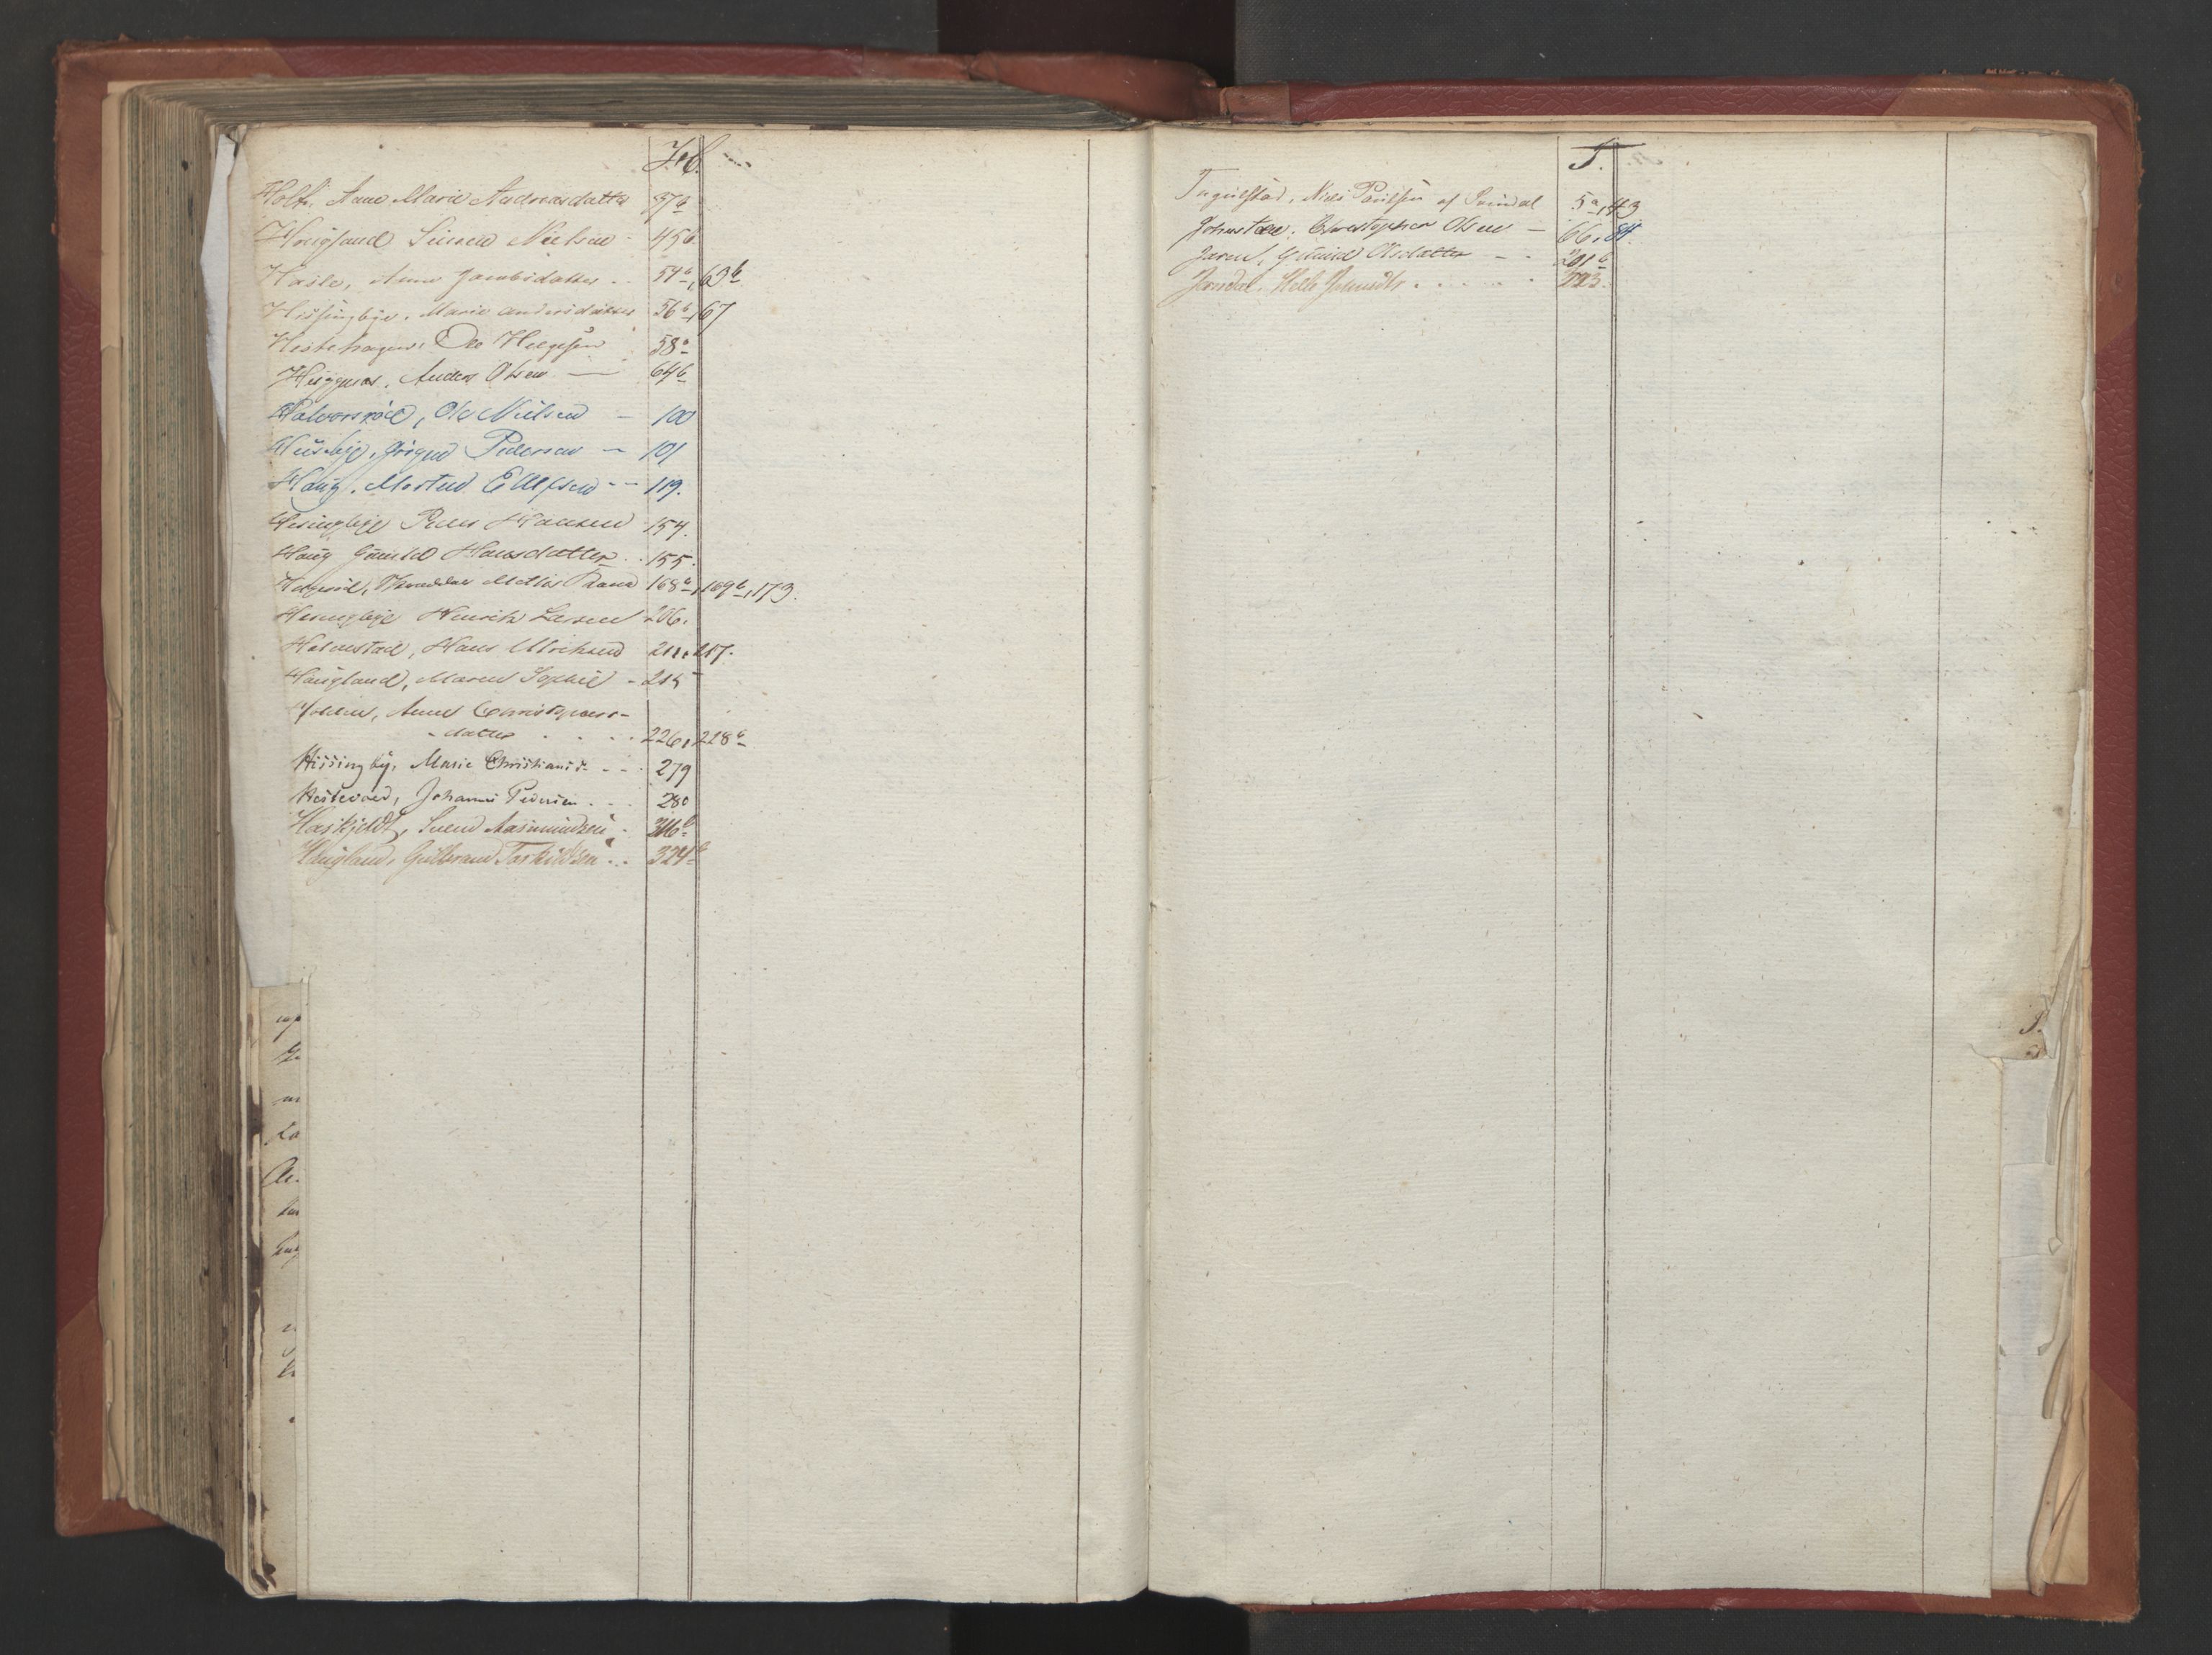 H.
Holt, Anne Marie Andreasdatter 37b
Haugland Simen Nielsen - 45b
Hasle, Anne Jacobsdatter .. 54b, 63b
Hissingbye, Marie Andersdatter 56b, 67
Hestehagen, Ole Helgesen 58a
Anders Olsen — 64b
Halvorsrød, Ole Nielsen - 100
Huusbye, Jørgen Pedersen - 101
Haug, Morten Ellefsen - - 119.
Hesingbye Hansen 154.
Haug Gunild Hansdatter . 155.
168b, 169b, 173.
Hesingbye Henrik Larsen 206.
Halvestad, Hans Ulrichsen 211, 217.
Haugland, Maren Sophie - 215
Holen, Anne Christophers-
- datter . . . . 226, 228b
Hissingby, Marie Christiansd. - - . 279
Hestevoed, Johannes Pedersen . . . 280
Haskjeldt, Svend Aasmundsen . 316b
Haugland, Gulbrand Torkildsen . . 324b
I.
Ingulstad, Niels Paulsen af 5a, 43
Johnstøen, Christopher Olsen — 66, 84.
Jaren, Gunild Olsdatter - - 201b
Jorsdal, Helle 293.